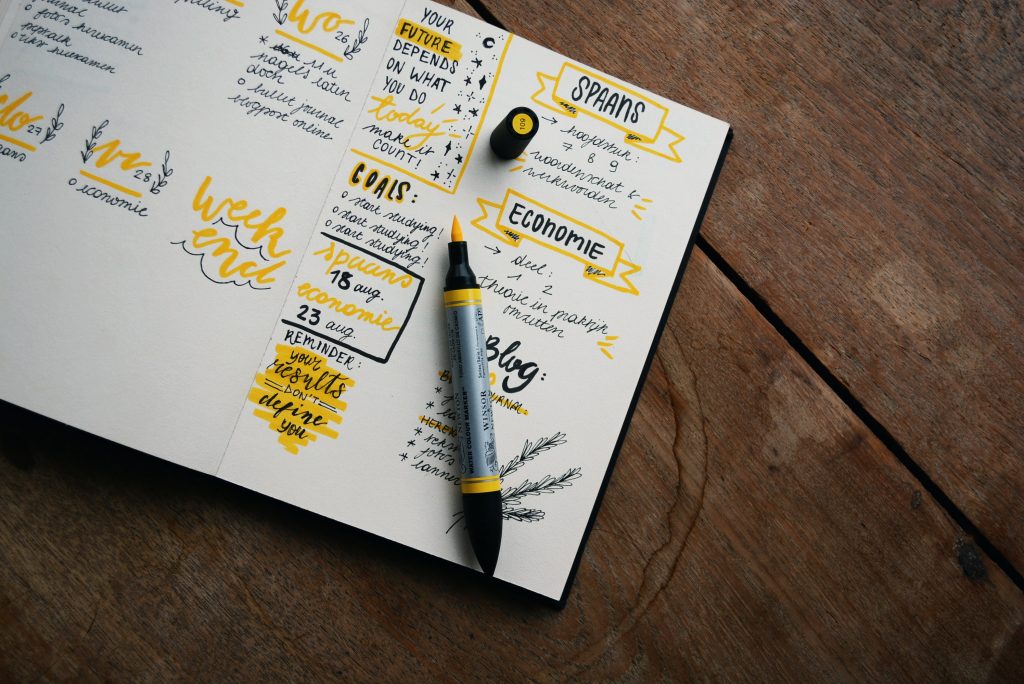 bullet
o fotos herexamen
o tekst herexamen
WO 26
* nagels laten
doen
o bullet journal
blogpost online
27
VR 28
o economie
Week
end
YOUR
FUTURE
DEPENDS
ON WHAT
YOU DO
today
make it
COUNT!
GOALS:
o start studying!
o start studying!
o start studying!
spaans
18 aug.
economie
23 aug.
REMINDER:
your
results
DON'T
define
you
SPAANS
→ hoofdstuk:
7 8 9
woordenschat &
werkwoorden
ECONOMIE
→ deel:
1 2
theorie in praktijk
omzetten
Blog:
109
WATER COLOUR MARKER
WINSOR